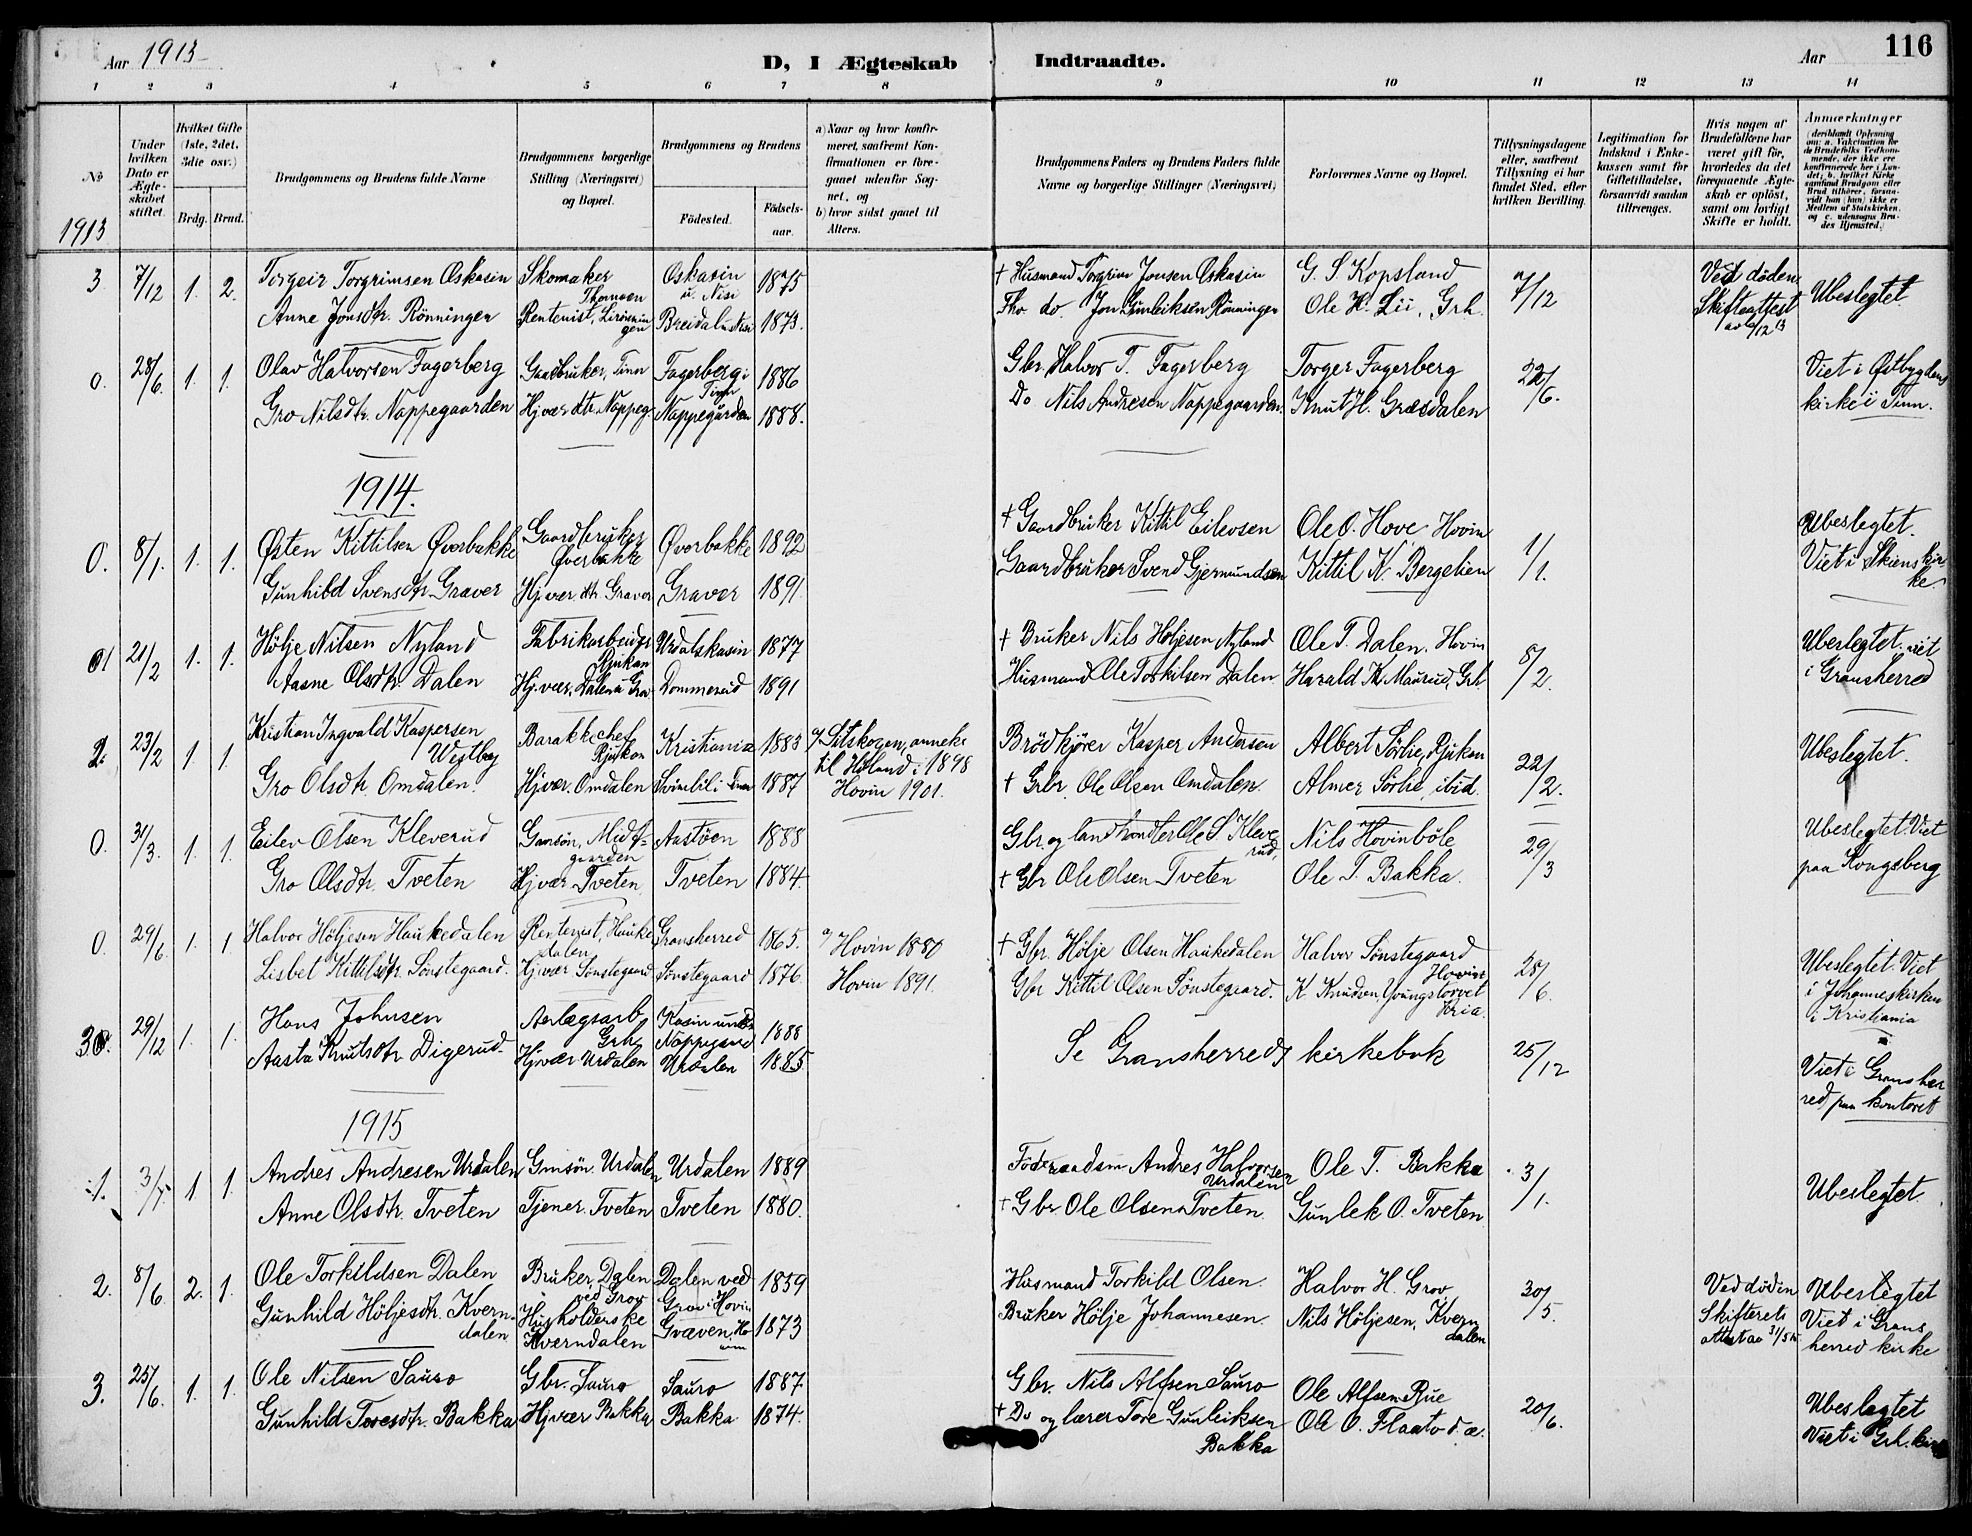 Aar 1913
D, I Ægteskab Indtraadte.
Aar 116
1 2 3 4 5 6 7 8 9 10 11 12 13 14
No
1913
Under hvilken Dato er Ægteskabet stiftet.
Hvilket Gifte (1ste, 2det, 3die osv.)
Brdg. Brud.
Brudgommens og Brudens fulde Navne
Brudgommens borgerlige Stilling (Næringsvei) og Bopæl.
Brudgommens og Brudens
Fødested. Fødselsaar.
a) Naar og hvor konfirmeret, saafremt Konfirmationen er foregaaet udenfor Sognet, og
b) hvor sidst gaaet til Alters.
Brudgommens Faders og Brudens Faders fulde Navne og borgerlige Stillinger (Næringsvei)
Forlovernes Navne og Bopæl.
Tillysningsdagene eller, saafremt Tillysning ei har fundet Sted, efter hvilken Bevilling.
Legitimation for Indskud i Enkekassen samt for Giftetilladelse, forsaavidt saadan tiltrænges.
Hvis nogen af Brudefolkene har været gift før, hvorledes da det foregaaende Ægteskab er opløst, samt om lovligt Skifte er holdt.
Anmærkninger (deriblandt Oplysning om: a. Vakcination for de Brudefolks Vedkommende, der ikke ere konfirmerede her i Landet; b. hvilket Kirkesamfund Brudgom eller Brud tilhører, forsaavidt han (hun) ikke er Medlem af Statskirken, og c. udensogns Brudes Hjemsted.)
3 7/12 1. 2. Torgeir Torgrimsen Oskasin Skomaker Oskasin u. Nisi 1875 † Husmand Torgrim Jonsen Oskasin G. S Kopsland 7/12 Ved døden Ubeslegtet
Anne Jonsdtr. Rönningen Rentenist, Breidal u Nisi 1873. do. Jon Gunleiksen Rönningen Ole H. Lii, Grh. Skifteattest
0. 28/6 1. 1. Olav Halvorsen Fagerberg Gaardbruker, Tinn Fagerberg i Tinn 1886 Gbr. Halvor T. Fagerberg Torger Fagerberg 22/6. Viet i Østbygdens
Gro Nilsdtr. Nappegaarden Hj.vær. dtr. Nappeg Nappegården 1888. Do Nils Andresen Nappegaarden Knut H. Græsdalen kirke i Tinn.
1914.
0. 8/1. 1. 1. Østen Kittilsen Øverbakke Gaardbruker Øverbakke Øverbakke 1892 † Gaardbruker Kittil Eilevsen Ole O. Hove Hovin 1/1. Ubeslegtet.
Gunhild Svensdtr. Graver Hj.vær. dtr. Graver Graver 1891. Gaardbruker Svend Gjermundsen Kittil K. Bergelien Viet i Skiens kirke.
21/2 1. 1. Hölje Nilsen Nyland Fabrikarbeider Rjukan Urdalskasin 1877 † Bruker Nils Höljesen Nyland Ole T. Dalen, Hovin 8/2. Ubeslegtet. viet
Aasne Olsdtr. Dalen Hj.vær. Dalen u Grov Dommerud 1891 Husmand Ole Torkilsen Dalen Harald K. Maurud, Grh. i Gransherred
23/2 1. 1. Kristian Ingvald Kaspersen Westby Barakkechef Rjukan Kristiania 1883 a/ Sitskogen, anneks til Høland i 1898 Brödkjörer Kasper Andersen Albert Sörlie, Rjukan 22/2. Ubeslegtet.
Gro Olsdtr. Omdalen Hj.vær. Omdalen i Tinn 1887 Hovin 1901. † Grbr. Ole Olsen Omdalen. Almer Sörlie, ibid.
0. 31/3. 1. 1. Eilev Olsen Kleverud Gmsön, Midtgaarden Aastöen 1888 Gbr. og landhandler Ole S Kleverud, Nils Hovinböle 29/3 Ubeslegtet. Viet
Gro Olsdtr. Tveten Hj.vær. Tveten Tveten 1884. † Gbr Ole Olsen Tveten Ole T. Bakka. paa Kongsberg
0. 29/6 1. 1 Halvor Höljesen Haukedalen Rentenist, Haukedalen Gransherred 1865. a/ Hovin 1880 † Gbr. Hölje Olsen Haukedalen Halvor Sönstegaard Hovin 28/6. Ubeslegtet. Viet
Lisbet Kittilsdtr. Sönstegaard. Hj.vær Sönstegaard Sönstegaard 1876. Hovin 1891. Gbr Kittil Olsen Sönstegaard. K Knudsen Youngstorvet Kria. i Johanneskirken i Kristiania
29/12 1. 1. Hans Johnsen Anlægsarb. Grh. Kasin under Nappegaard 1888 Se Gransherreds kirkebok 25/12 Viet i Gransher
Aasta Knutsdtr Digerud. Hj.vær Urdalen Urdalen 1885 red paa kontoret
1915
1. 1. 1. Andres Andresen Urdalen Gmsön. Urdalen Urdalen 1889 Föderaadsm Andres Halvorsen Urdalen Ole T. Bakka 3/1. Ubeslegtet
Anne Olsdtr. Tveten Tjener. Tveten Tveten 1880. † Gbr Ole Olsen Tveten. Gunlek O. Tveten
2. 8/6 2. 1. Ole Torkildsen Dalen Bruker, Dalen ved Grov Dalen ved Grov i Hovin 1859 Husmand Torkild Olsen. Halvor H. Grov, 30/5. Ved döden Ubeslegtet
Gunhild Höljesdtr. Kverndalen Husholderske Kverndalen Græven, Hovin 1873 Bruker Hölje Johannesen. Nils Höljesen, Kverndalen Skifterets Viet i Gransherred kirke
3. 25/6. 1. 1. Ole Nilsen Sauro Gbr. Sauro Sauro 1887. Gbr. Nils Alfsen Sauro Ole Alfsen Rue 20/6. Ubeslegtet
Gunhild Toresdtr. Bakka Hj.vær Bakka Bakka 1874. † Do og lærer Tore Gunleiksen Bakka Ole O. Flaato d. æ. Viet i Grh. kirke